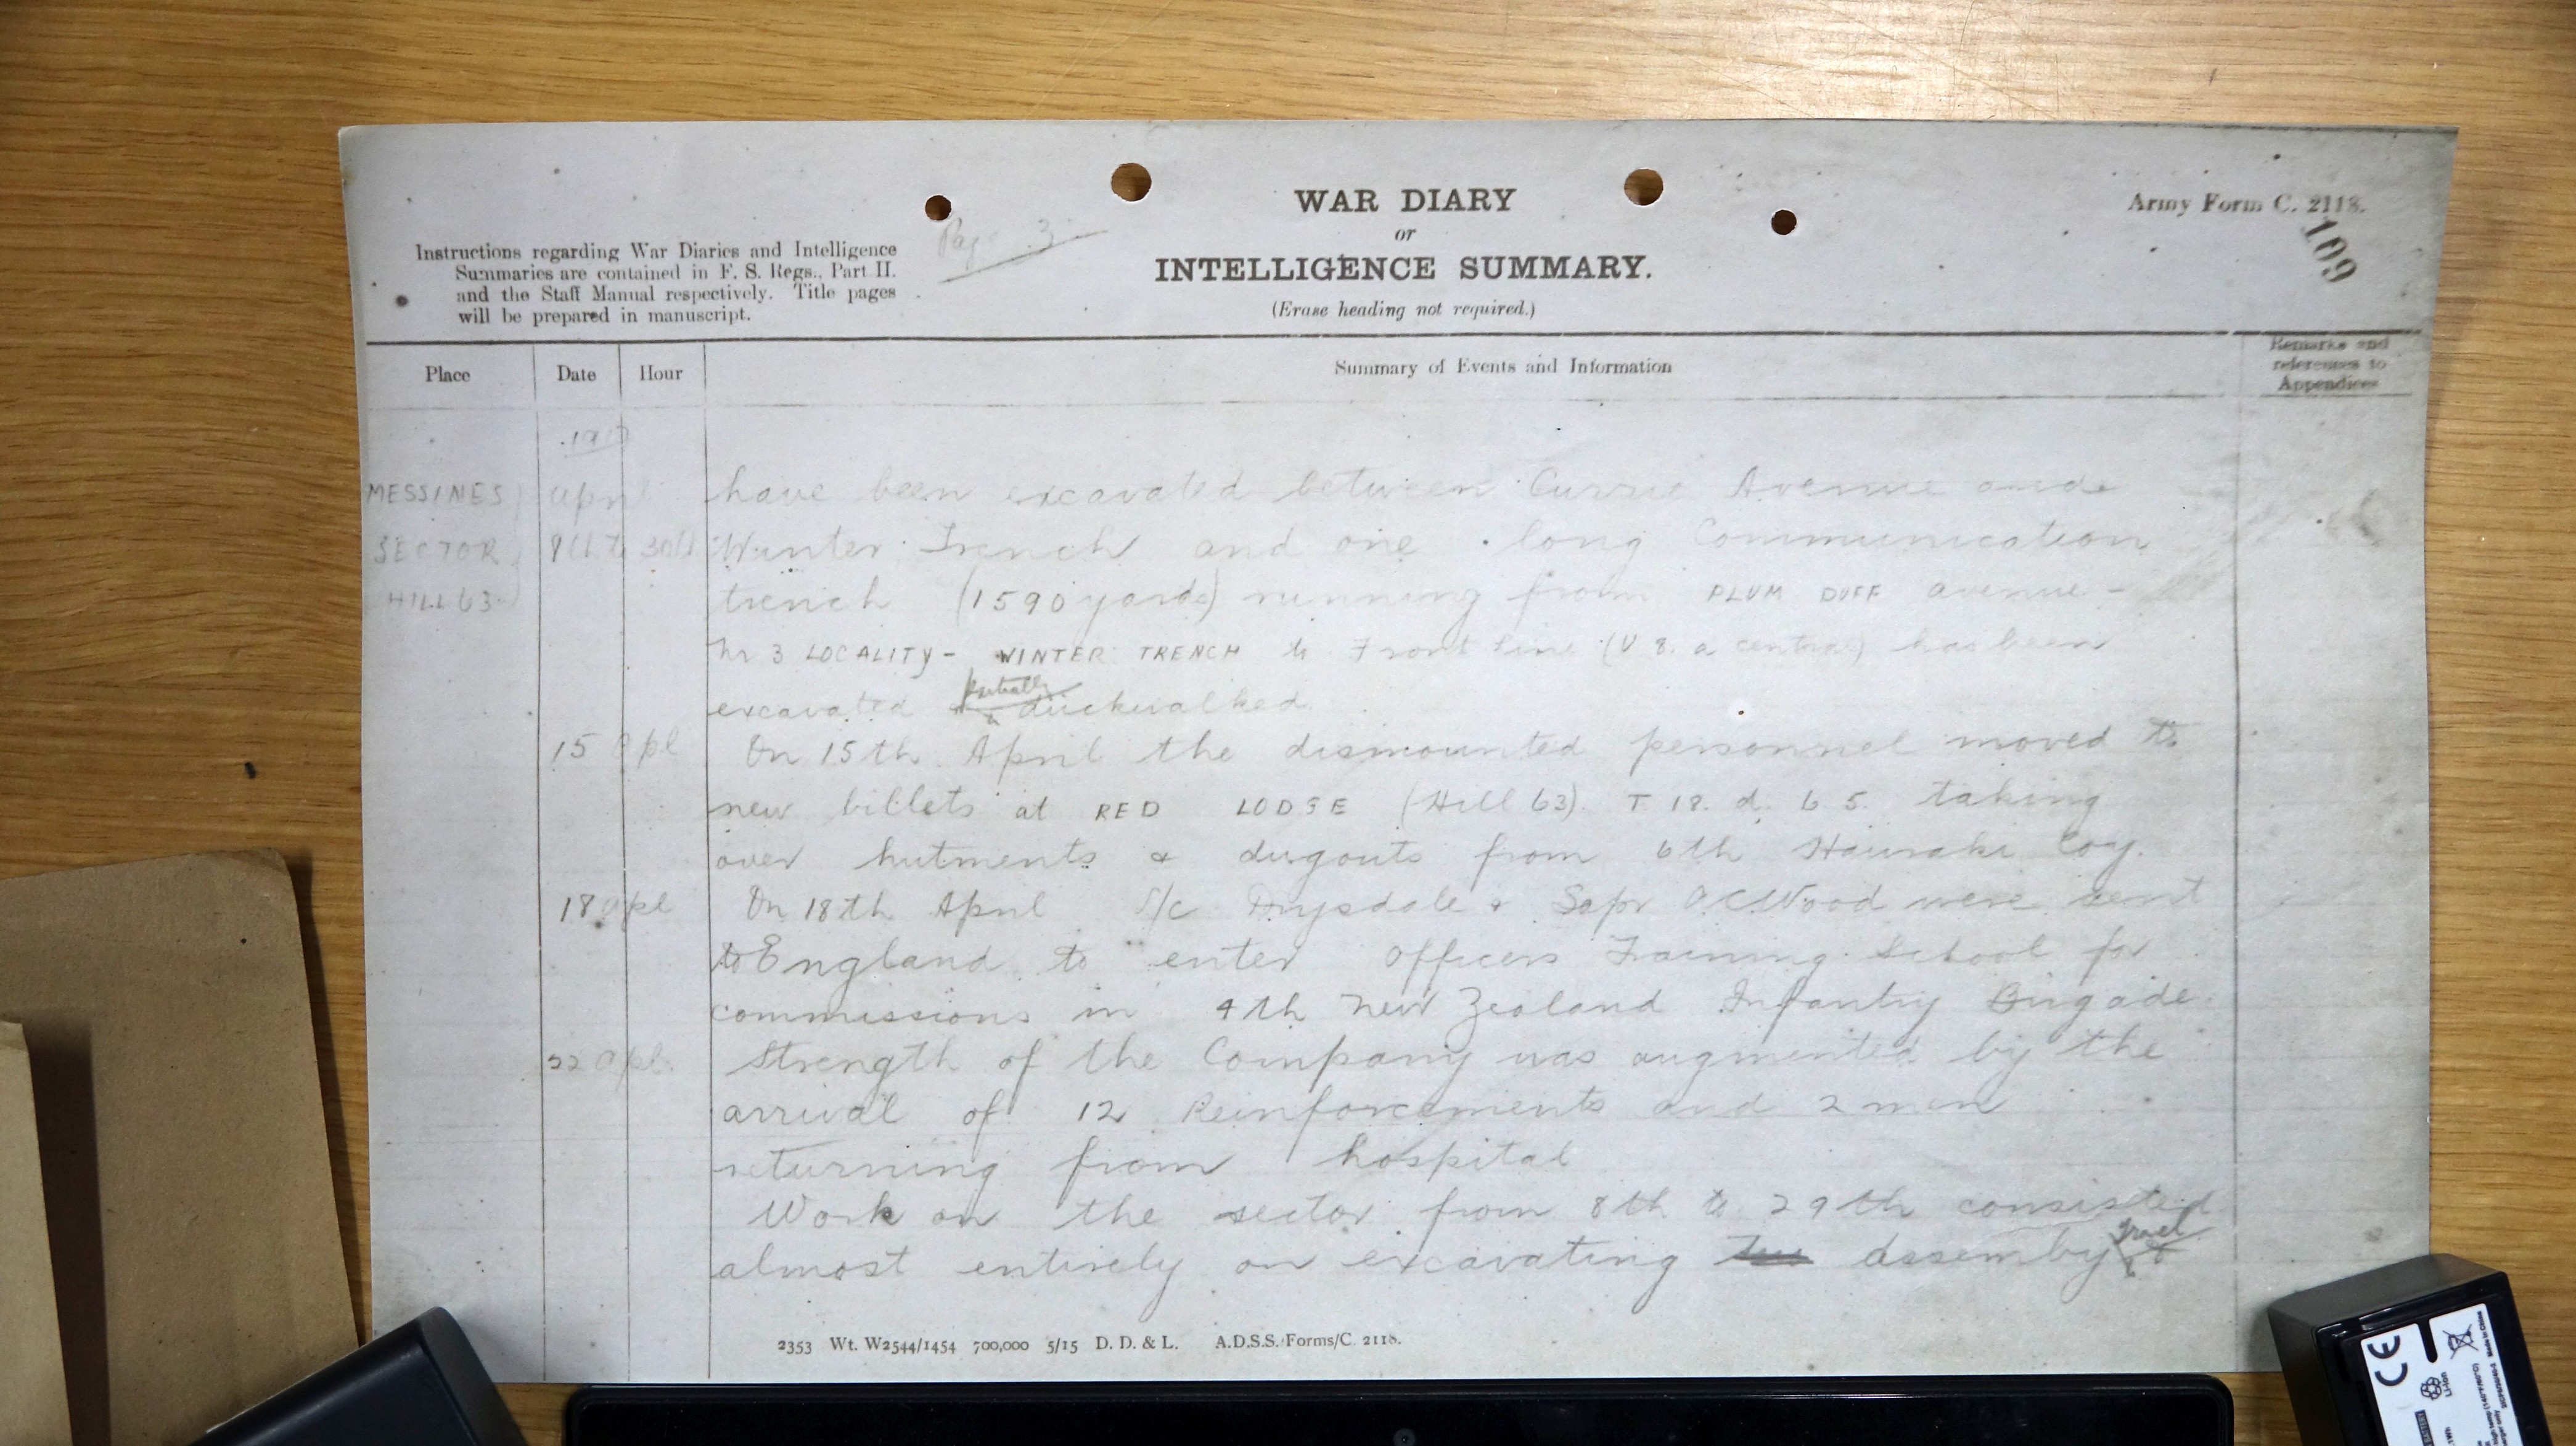 Army Form C. 2118.
109
WAR DIARY
or
INTELLIGENCE SUMMARY.
(Erase heading not required.)
Page 3
Instructions regarding War Diaries and Intelligence
Summaries are contained in F. S. Regs., Part II.
and the Staff Manual respectively. Title pages
will be prepared in manuscript.
Place Date Hour Summary of Events and Information Remarks and references to Appendices
MESSINES April have been excavated between Currie Avenue and
SECTOR 8th to 30th Winter Trench and one long Communication
HILL 63 trench (1590 yards) running from PLUM DUFF avenue -
Nr 3 LOCALITY - WINTER TRENCH to Front Line (U 8. a central) has been
excavated partially duckwalked.
15 Apl On 15th April the dismounted personnel moved to
new billets at RED LODGE (Hill 63) T 18. d. 6 5. taking
over hutments & dugouts from 6th Hauraki Coy.
18 apl On 18th April Drysdale & Sapr O.C. Wood were sent
to England to enter Officers Training School for
commissions in 4th New Zealand Infantry Brigade.
22 apl. Strength of the Company was augmented by the
arrival of 12 Reinforcements and 2 men
returning from hospital
Work on the sector from 8th to 29th consisted
almost entirely on excavating assembly
2353 Wt. W2544/1454 700,000 5/15 D. D. & L. A.D.S.S./Forms/C. 2118.
CE
Li-ion
Made in China